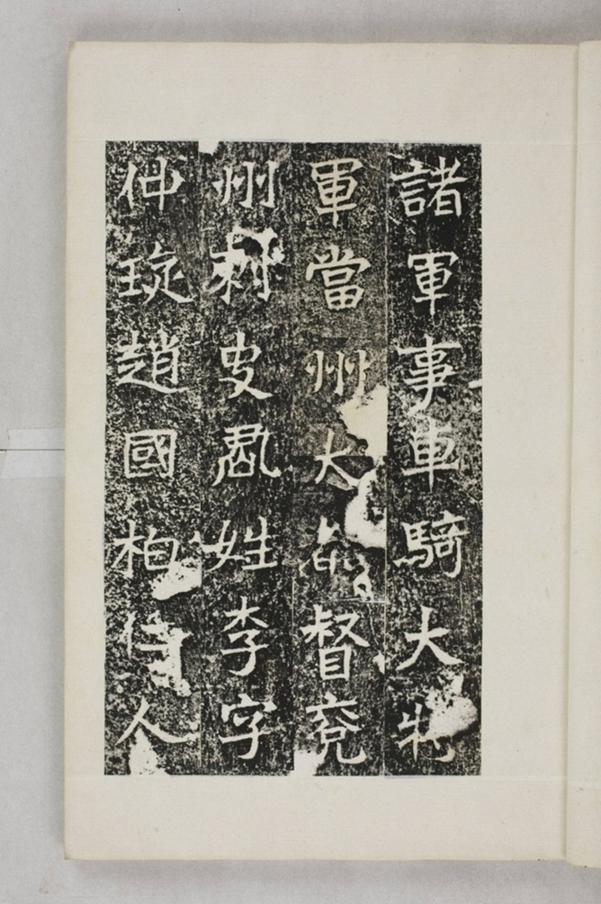 諸軍事車騎大將
軍當州大都督兗
州刾史君姓李字
仲琁趙國柏人